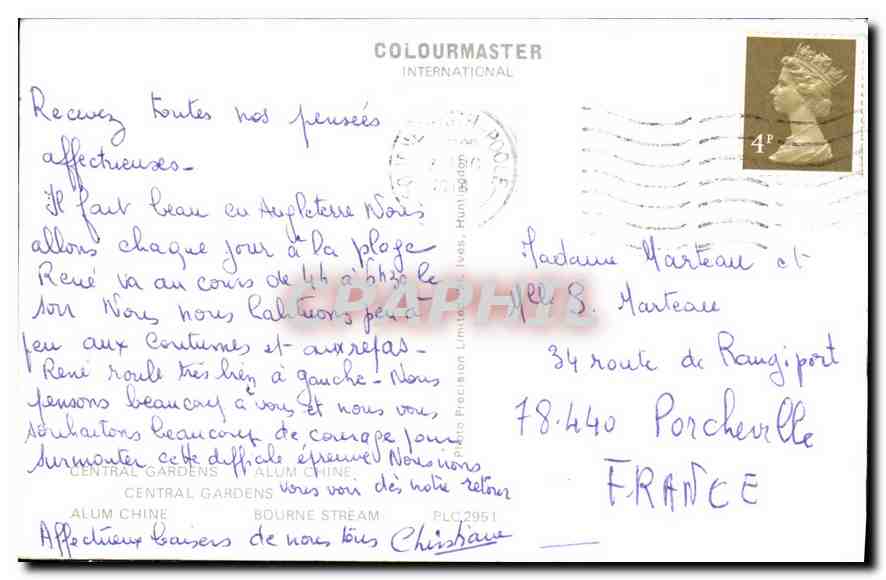 COLOURMASTER
INTERNATIONAL
4P
POOLE
Recevez toutes nos pensées
affectueuses-
Il fait beau en Angleterre Nous
allons chaque jour à la plage
René va au cours de 4h à 6h30 le
soir Nous nous habituons peu à
peu aux coutumes et aux repas-
René roule très bien à gauche- Nous
pensons beaucoup à vous et nous vous
souhaitons beaucoup de courage pour
surmonter cette difficile épreuve Nous irons
vous voir dès notre retour
Affectueux baisers de nous tous Christiane
Madame Marteau et
Mlle S. Marteau
34 route de Rangiport
78.440 Porcheville
FRANCE
CENTRAL GARDENS ALUM CHINE
CENTRAL GARDENS
ALUM CHINE BOURNE STREAM PLC2951
Photo Precision Limited, St. Ives, Huntingdon
CPAPHIL